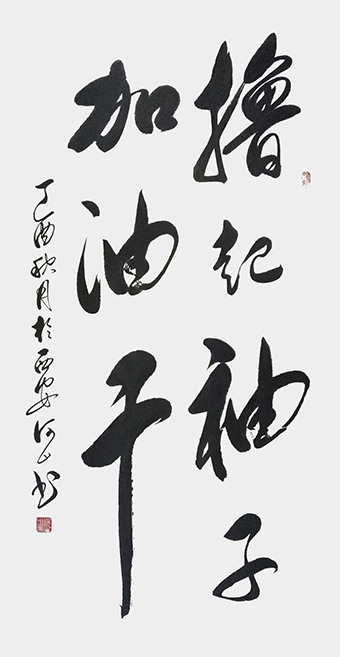 撸起袖子
加油干
丁酉秋月于西安何山书